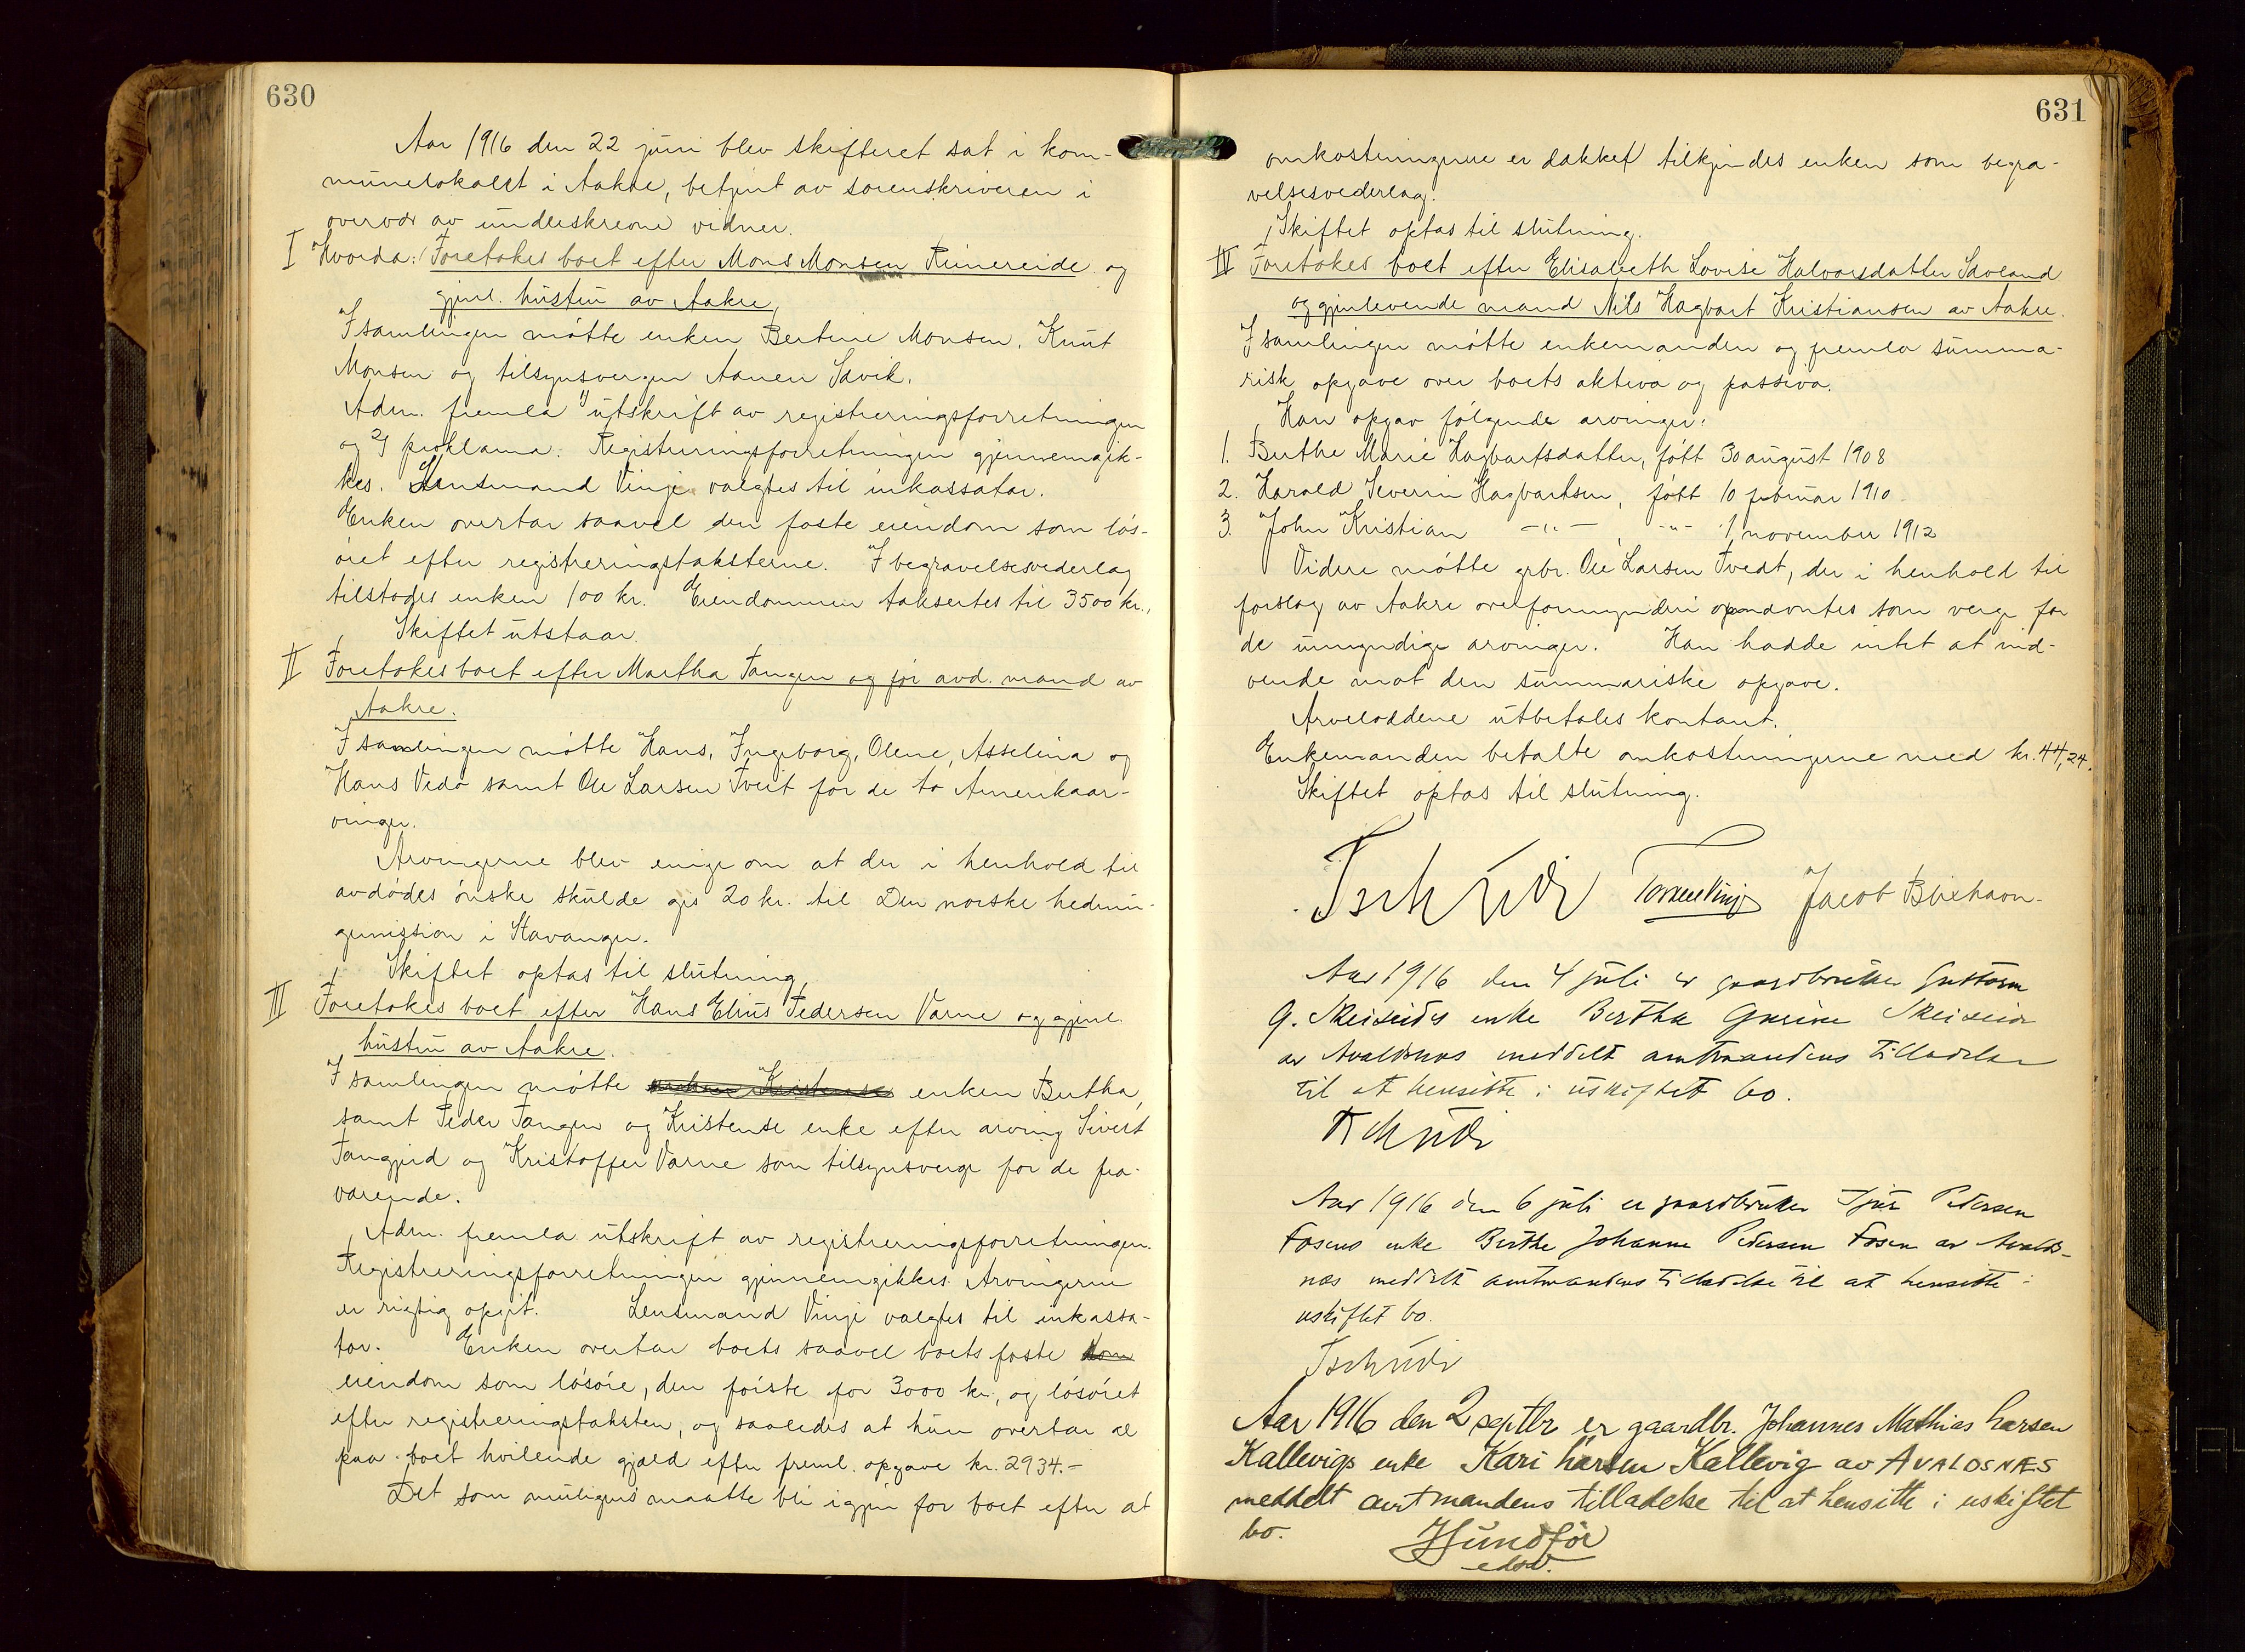 630
Aar 1916 den 22 juni blev skifteret sat i kom-
munelokalet i Aakre, betjent av sorenskriveren i
overvær av underskrevne vidner.
I Hvorda: Foretokes boet efter Mons Monsen Reinereide og
gjenl. hustru av Aakre,
I samlingen møtte enken Bertine Monsen, Knut
Monsen og tilsynsvergen Aanen Sævik.
Adm. fremla 1) utskrift av registreringsforretningen
og 2) proklama. Registreringsforretningen gjennemgik-
kes. Lensmand Vinje valgtes til inkassator.
Enken overtar saavel den faste eiendom som løs-
øret efter registreringstaksterne. I begravelsesvederlag
tilstodes enken 100 kr. Eiendommen taksertes til 3500 kr.,
Skiftet utstaar.
II Foretokes boet efter Martha Tangen og før avd. mand av
Aakre.
I samlingen møtte Hans, Ingeborg, Olene, Asselina og
Hans Vedø samt Ole Larsen Tveit for de to Amerikaar-
vinger.
Arvingerne blev enige om at der i henhold til
avdødes ønske skulde gis 20 kr. til Den norske hednin-
gemission i Stavanger.
Skiftet optas til slutning.
III Foretokes boet efter Hans Elius Pedersen Varne og gjenl.
hustru av Aakre.
I samlingen møtte enken Bertha,
samt Peder Tangen og Kristense enke efter arving Sivert
Tangjerd og Kristoffer Varne som tilsynsverge for de fra-
værende.
Adm. fremla utskrift av registreringsforretningen.
Registreringsforretningen gjennemgikkes. Arvingerne
er rigtig opgit. Lensmand Vinje valgtes til inkassa-
tor. Enken overtar boets saavel boets faste som
eiendom som løsøre, den første for 3000 kr, og løsøret
efter registreringstaksten, og saaledes at hun overtar al
paa boet hvilende gjæld efter freml. opgave kr. 2934.-
Det som muligens maatte bli igjen for boet efter at
631
omkostningerne er dækket tilkjendes enken som begra-
velsesvederlag.
Skiftet optas til slutning.
IV Foretokes boet efter Elisabeth Lovise Halvorsdatter Sævland
og gjenlevende mand Nils Hagbart Kristiansen av Aakre.
I samlingen møtte enkemanden og fremla summa-
risk opgave over boets aktiva og passiva.
Han opgav følgende arvinger:
1. Berthe Marie Hagbartsdatter, født 30 august 1908
2. Harald Severin Hagbartsen, født 10 februar 1910
3. John Kristian -"- , -"- 1 november 1912
Videre møtte grbr. Ole Larsen Tvedt, der i henhold til
forslag av Aakre overformynderi opnævntes som verge for
de umyndige arvinger. Han hadde intet at ind-
vende mot den summariske opgave.
Arveloddene utbetales kontant.
Enkemanden betalte omkostningerne med kr. 44,24.
Skiftet optas til slutning.
Tschudi Torkel Vinje Jacob Blixhavn.
Aar 1916 den 4 juli er gaardbruker Guttorm
G. Skeiseids enke Bertha Gurine Skeiseid
av Avaldsnes meddelt amtmandens tilladelse
til at hensitte i uskiftet bo.
Tschudi
Aar 1916 den 6 juli er gaardbruker Sjur Pedersen
Fosens enke Berthe Johanne Pedersen Fosen av Avalds-
nes meddelt amtmandens tilladelse til at hensitte i
uskiftet bo.
Tschudi
Aar 1916 den 2 septbr er gaardbr. Johannes Mathias Larsen
Kallevigs enke Kari Larsen Kallevig av AVALDSNÆS
meddelt amtmandens tilladelse til at hensitte i uskiftet
bo. Hundför
edsv.